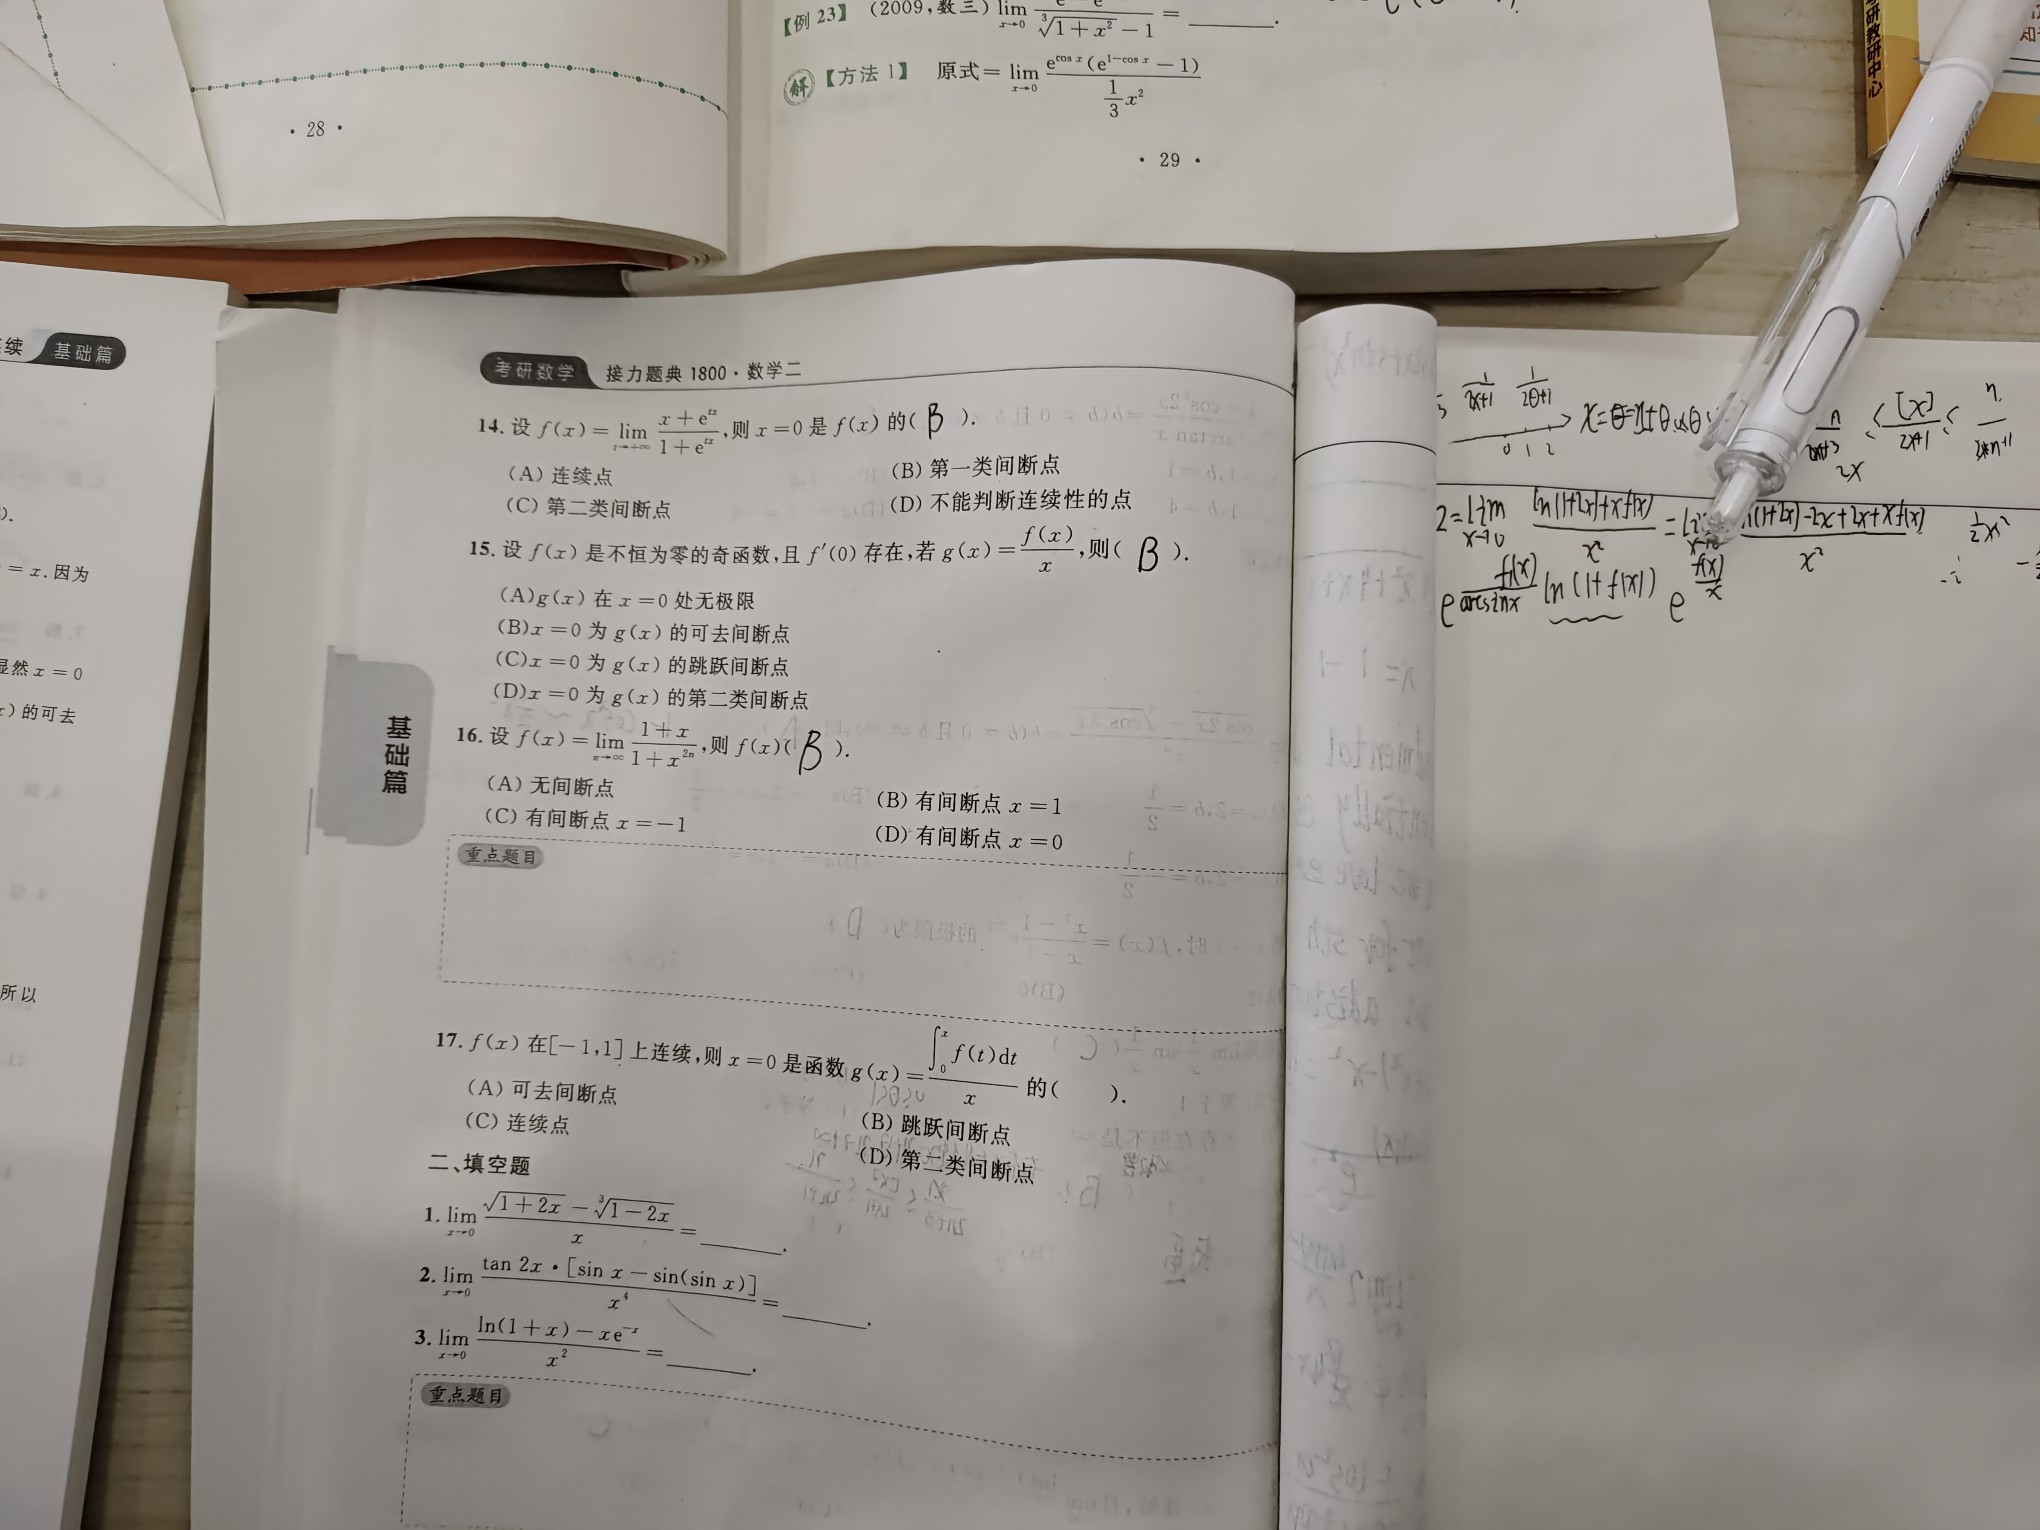 【例 23】 (2009,数三) lim x→0 / ∛(1+x²) − 1 = ______.
解 【方法 1】 原式 = lim x→0 e^{cos x}(e^{1−cos x} − 1) / (1/3)x²
· 28 ·
· 29 ·
考研教研中心
续 基础篇
).
= x.因为
显然 x = 0
) 的可去
所以
考研数学 接力题典 1800 · 数学二
14. 设 f(x) = lim t→+∞ (x + e^{tx})/(1 + e^{tx}),则 x = 0 是 f(x) 的( B ).
(A) 连续点 (B) 第一类间断点
(C) 第二类间断点 (D) 不能判断连续性的点
15. 设 f(x) 是不恒为零的奇函数,且 f′(0) 存在,若 g(x) = f(x)/x,则( B ).
(A)g(x) 在 x = 0 处无极限
(B)x = 0 为 g(x) 的可去间断点
(C)x = 0 为 g(x) 的跳跃间断点
(D)x = 0 为 g(x) 的第二类间断点
16. 设 f(x) = lim n→∞ (1 + x)/(1 + x^{2n}),则 f(x)( B ).
(A) 无间断点 (B) 有间断点 x = 1
(C) 有间断点 x = −1 (D) 有间断点 x = 0
基础篇
重点题目
17. f(x) 在[−1,1] 上连续,则 x = 0 是函数 g(x) = ∫₀ˣ f(t)dt / x 的( ).
(A) 可去间断点 (B) 跳跃间断点
(C) 连续点 (D) 第二类间断点
二、填空题
1. lim x→0 (√(1 + 2x) − ∛(1 − 2x))/x = ______.
2. lim x→0 tan 2x · [sin x − sin(sin x)]/x⁴ = ______.
3. lim x→0 (ln(1 + x) − xe^{−x})/x² = ______.
重点题目
1/(2x+1) 1/(2θ+1)
0 1 2
[x]/(2x+1) <
2x
2 = lim x→0 (ln(1+2x)+xf(x))/x² = (ln(1+2x)−2x+2x+xf(x))/x² ½x²
e^{f(x)/arcsinx} ln(1+f(x)) e^{f(x)/x}